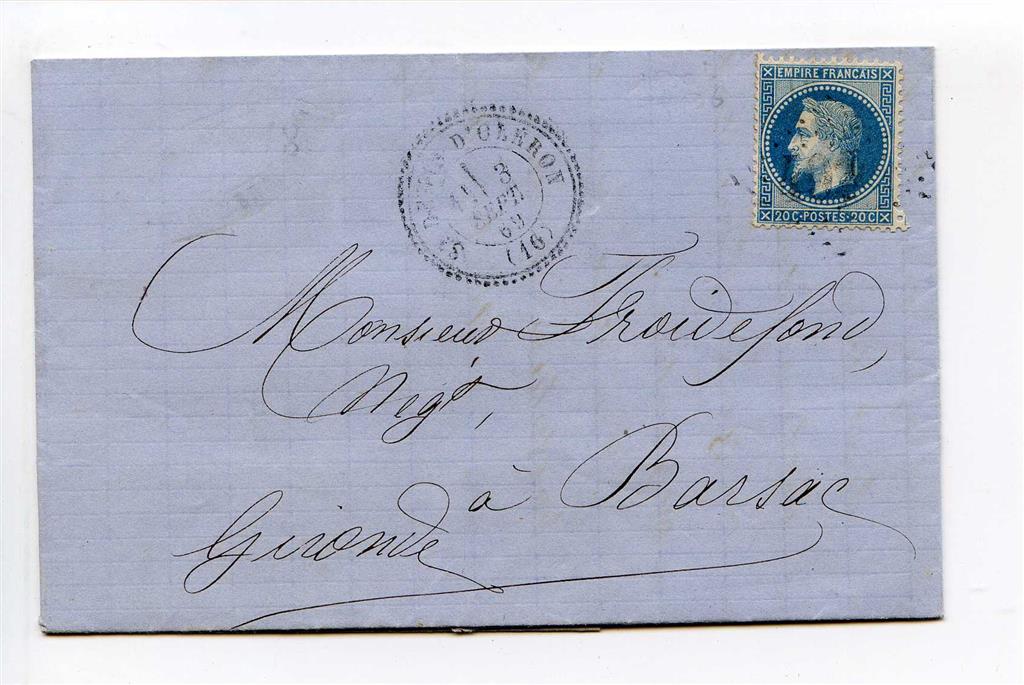 EMPIRE FRANCAIS
20C·POSTES·20C
D'OLERON
3
SEPT
69
(16)
Monsieur Froidefond,
Negt,
à Barsac
Gironde